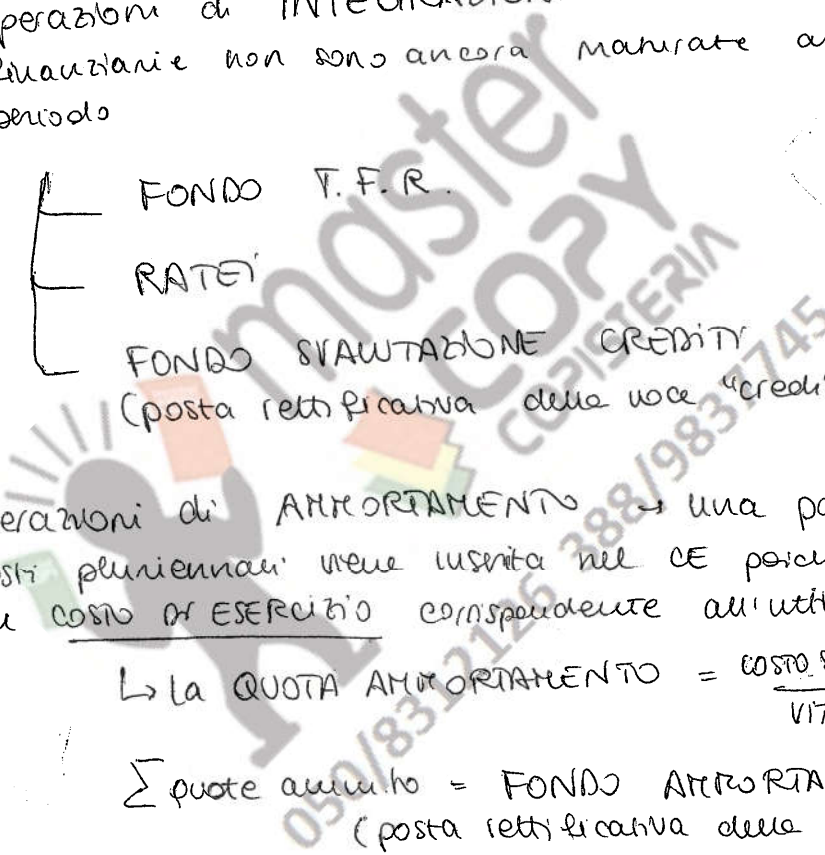 perazioni di INTEGRAZION
finanziarie non sono ancora maturate a
periodo
FONDO T.F.R.
RATEI
FONDO SVALUTAZIONE CREDITI
(posta rettificativa della voce "credi
erazioni di AMMORTAMENTO → una pa
sti pluriennali viene inserita nel CE poich
COSTO DI ESERCIZIO corrispondente all'util
↳ la QUOTA AMMORTAMENTO = COSTO S
VIT
Σ quote amm.to = FONDO AMMORTA
(posta rettificativa della
master
COPY
COPISTERIA
050/8312126 388/9837745